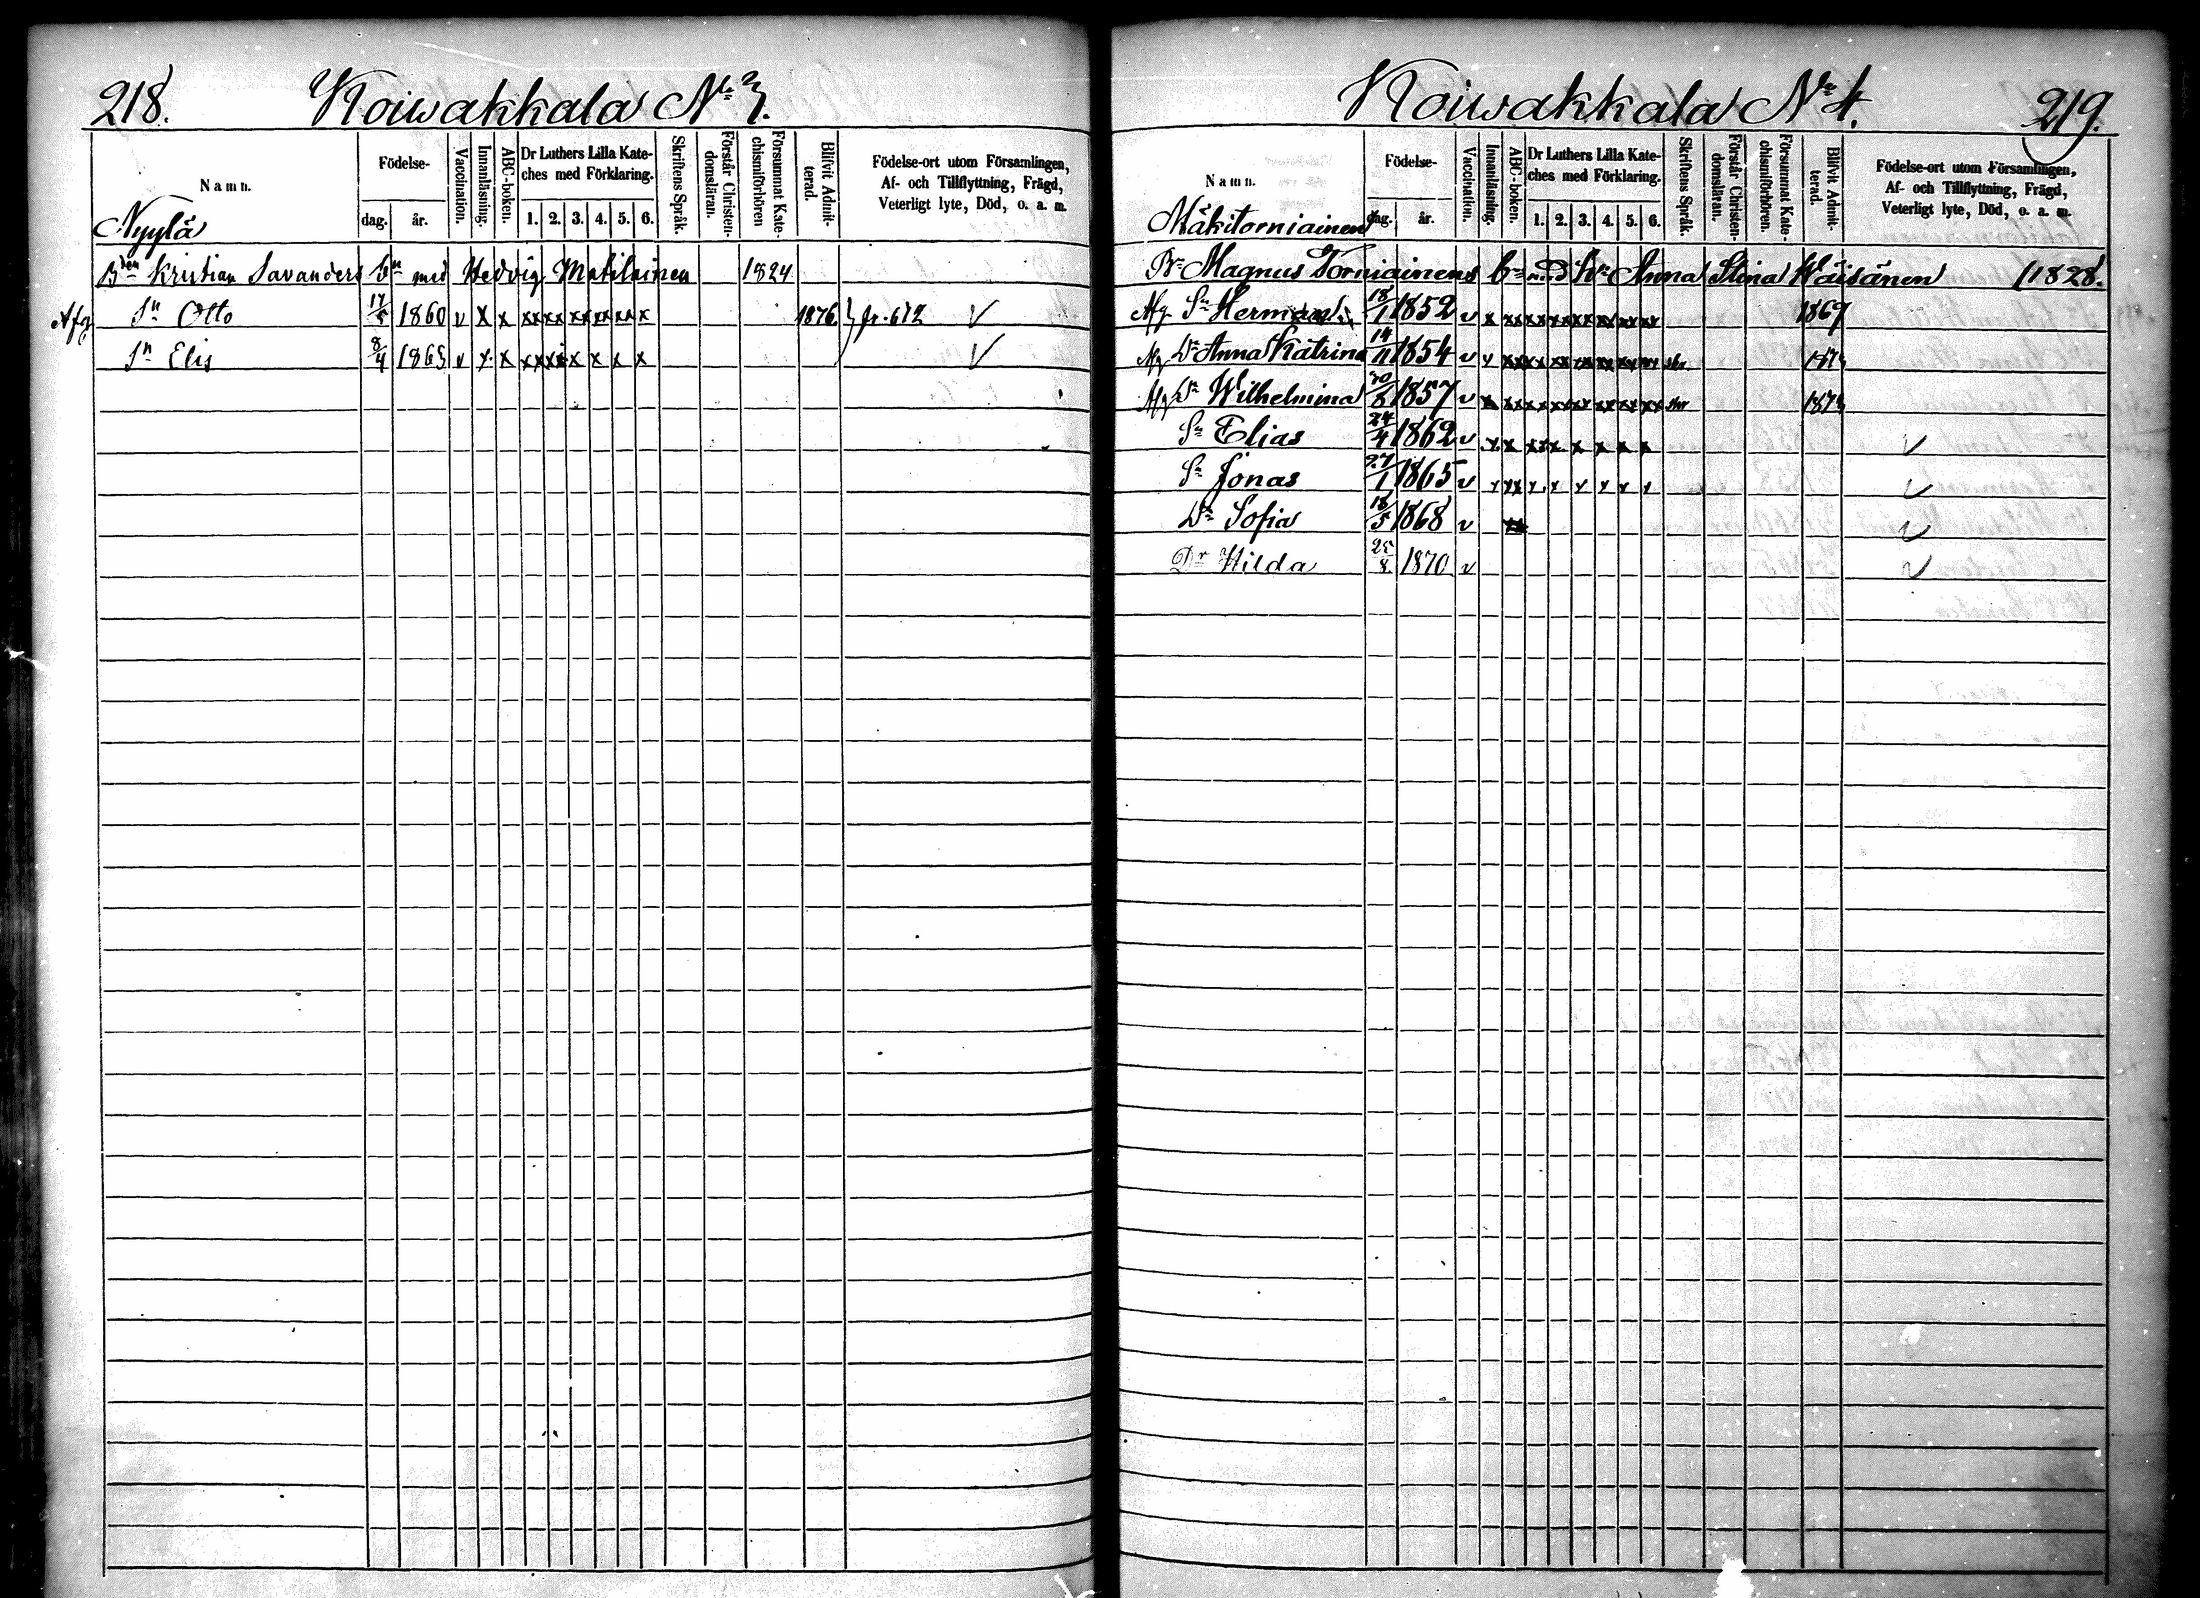 218. Koiwakkala No 3.
Namn.
Födelse-
dag. år.
Vaccination.
Innanläsning.
ABC-boken.
Dr Luthers Lilla Kate-
ches med Förklaring.
1. 2. 3. 4. 5. 6.
Skriftens Språk.
Förstår Christen-
domsläran.
Försummat Kate-
chismiförhören
Blifvit Admit-
terad.
Födelse-ort utom Församlingen,
Af- och Tillflyttning, Frägd,
Veterligt lyte, Död, o. a. m.
Nyylä
Kristian Savanders bn med Hedvig Matilainen 1824
Sn Otto 17/5 1860 v x x xx xx xx xx xx x 1876 fr. 672 V
Sn Elis 8/4 1863 v x x x x x x V
Koiwakkala No 4. 219.
Namn.
Födelse-
dag. år.
Vaccination.
Innanläsning.
ABC-boken.
Dr Luthers Lilla Kate-
ches med Förklaring.
1. 2. 3. 4. 5. 6.
Skriftens Språk.
Förstår Christen-
domsläran.
Försummat Kate-
chismiförhören.
Blifvit Admit-
terad.
Födelse-ort utom Församlingen,
Af- och Tillflyttning, Frägd,
Veterligt lyte, Död, o. a. m.
Mäkitorniainen
Magnus Torniainens bn med Anna Stina Wäisänen 1828.
Afg Sn Herman 18/1 1852 v x 1869
Afg Dr Anna Katrina 14/11 1854 v
Afg Dr Wilhelmina 30/8 1857 v x
Sn Elias 24/4 1862 v x x x x x x V
Sn Jonas 27/1 1865 v x x x x x x V
Dr Sofia 18/5 1868 v V
Dr Hilda 25/8 1870 v V